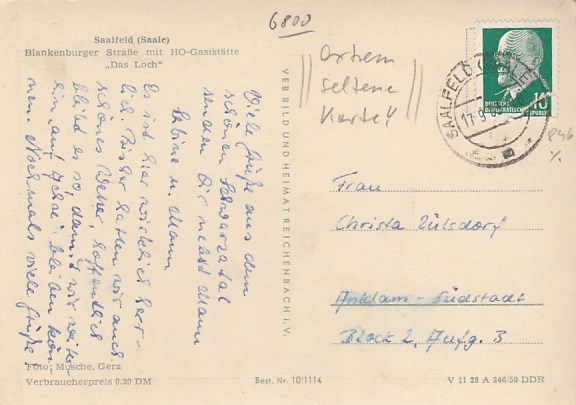 6800
Saalfeld (Saale)
Blankenburger Straße mit HO-Gaststätte
„Das Loch“
Viele Grüße aus dem
schönen Schwarzatal
senden Dir nebst Mann
Sabine u. Mann
Es ist hier wirklich herr-
lich. Bisher hatten wir auch
schönes Wetter, hoffentlich
bleibt es so, damit wir weiter-
hin auf Achse bleiben kön-
nen. Nochmals viele Grüße
Foto: Musche, Gera
Verbraucherpreis 0.20 DM
VEB BILD UND HEIMAT REICHENBACH I. V.
Best. Nr. 10/1114
seltene
Karte
SAALFELD (SAALE)
DEUTSCHE
DEMOKRATISCHE
REPUBLIK
10
Frau
Christa Zülsdorf
Anklam-Südstadt
Block 2, Aufg. 3
V 11 28 A 246/59 DDR